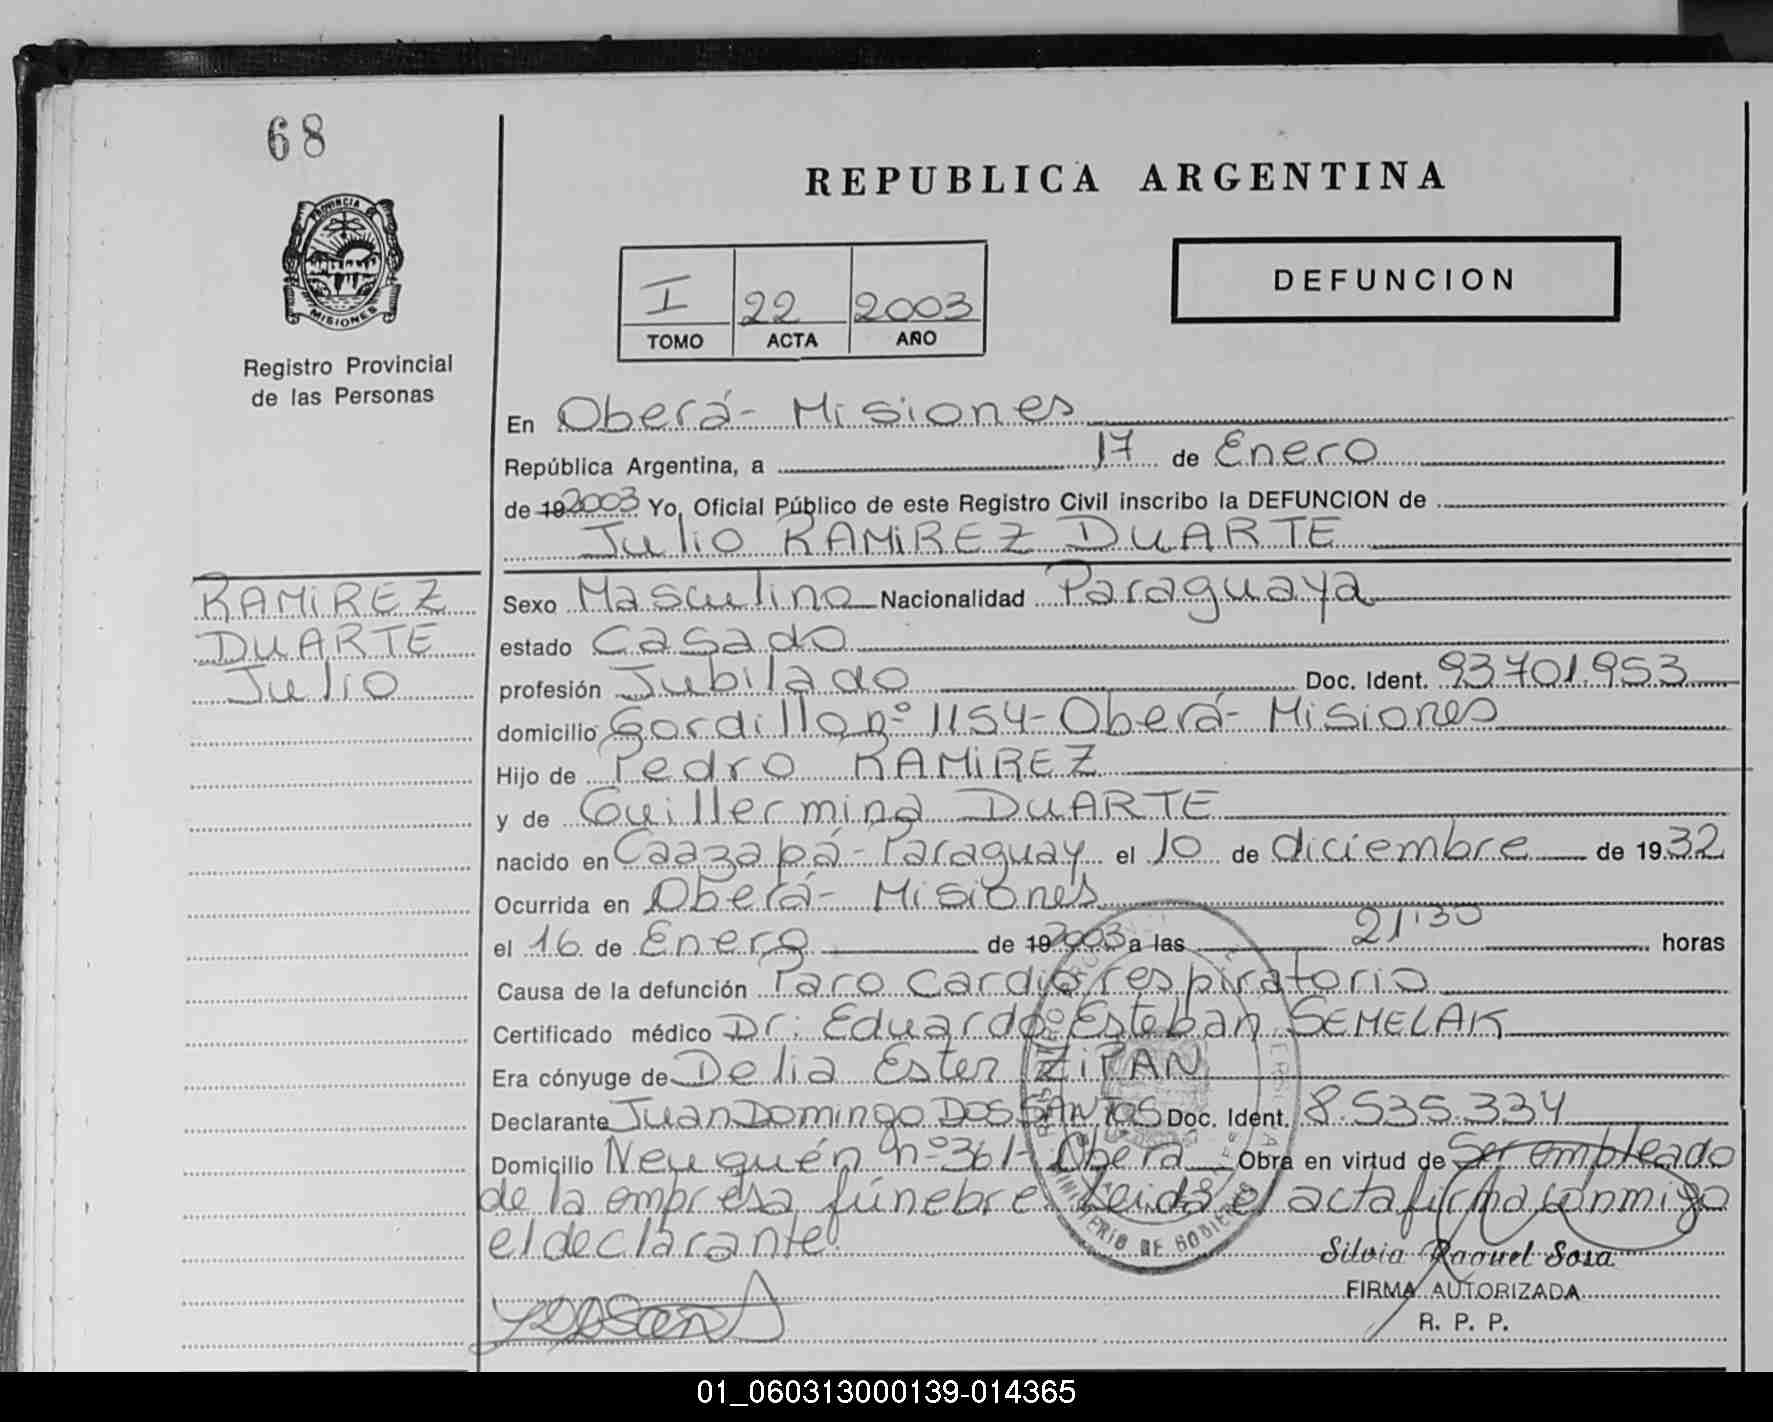 68
PROVINCIA DE
MISIONES
Registro Provincial
de las Personas
REPUBLICA ARGENTINA
I 22 2003
TOMO ACTA AÑO
DEFUNCION
En Oberá - Misiones
República Argentina, a 17 de Enero
de 19 2003 Yo, Oficial Público de este Registro Civil inscribo la DEFUNCION de
Julio RAMIREZ DUARTE
RAMIREZ
DUARTE
Julio
Sexo Masculino Nacionalidad Paraguaya
estado Casado
profesión Jubilado Doc. Ident. 93701.953
domicilio Gordillo nº 1154 - Oberá - Misiones
Hijo de Pedro RAMIREZ
y de Guillermina DUARTE
nacido en Caazapá - Paraguay el 10 de diciembre de 1932
Ocurrida en Oberá - Misiones
el 16 de Enero de 19 2003 a las 21'30 horas
Causa de la defunción Paro Cardio respiratorio
Certificado médico Dr. Eduardo Esteban SEMELAK
Era cónyuge de Delia Ester ZIPAN
Declarante Juan Domingo DOS SANTOS Doc. Ident. 8.535.334
Domicilio Neuquén nº 361 - Oberá Obra en virtud de Ser empleado
de la empresa fúnebre. Leída el acta firma conmigo
el declarante.
MINISTERIO DE GOBIERNO
Silvia Raquel Sosa
FIRMA AUTORIZADA
R. P. P.
01_060313000139-014365